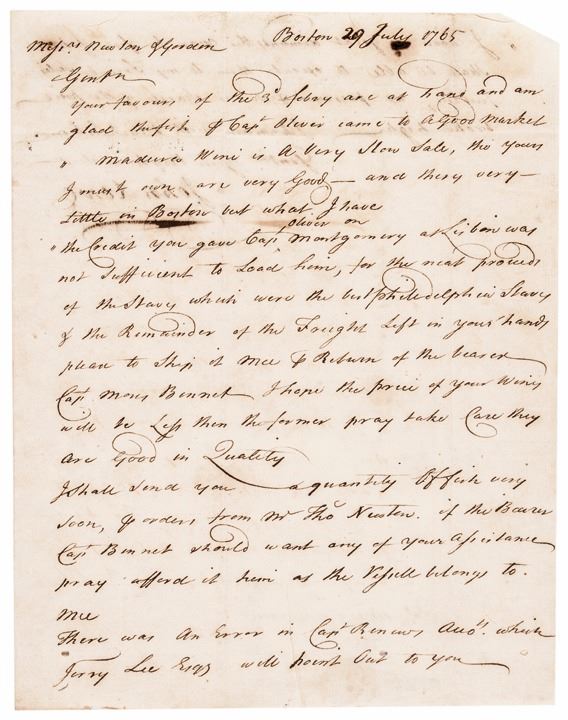 Boston 29 July 1765
Messrs Newton & Gordon
Gentn
Your favours of the 3d febry are at hand and am
glad the fish ⅌ Capt Oliver came to A Good Market
" Madura Wine is A Very Slow Sale, tho yours
I must own are very Good — and thers very —
Little in Boston but what I have
" the Credit you gave Capt oliver on Montgomery at Lisbon was
not Sufficient to Load him, for the neat proceeds
of the Staves which were the best Philedelphia Staves
& the Remainder of the Freight Left in your hands
please to Ship it Mee ⅌ Return of the bearer
Capt Moses Bennet I hope the price of your Wines
will be Less then the former pray take Care they
are Good in Quality
I shall Send you a quantity Off fish very
Soon, ⅌ orders from Mr Tho Newton. if the Bearer
Capt Bennet should want any of your Assistance
pray afferd it him as the Vessell belongs to
Mee
There was An Error in Capt Accot. which
Jerry Lee Esqr will point Out to you